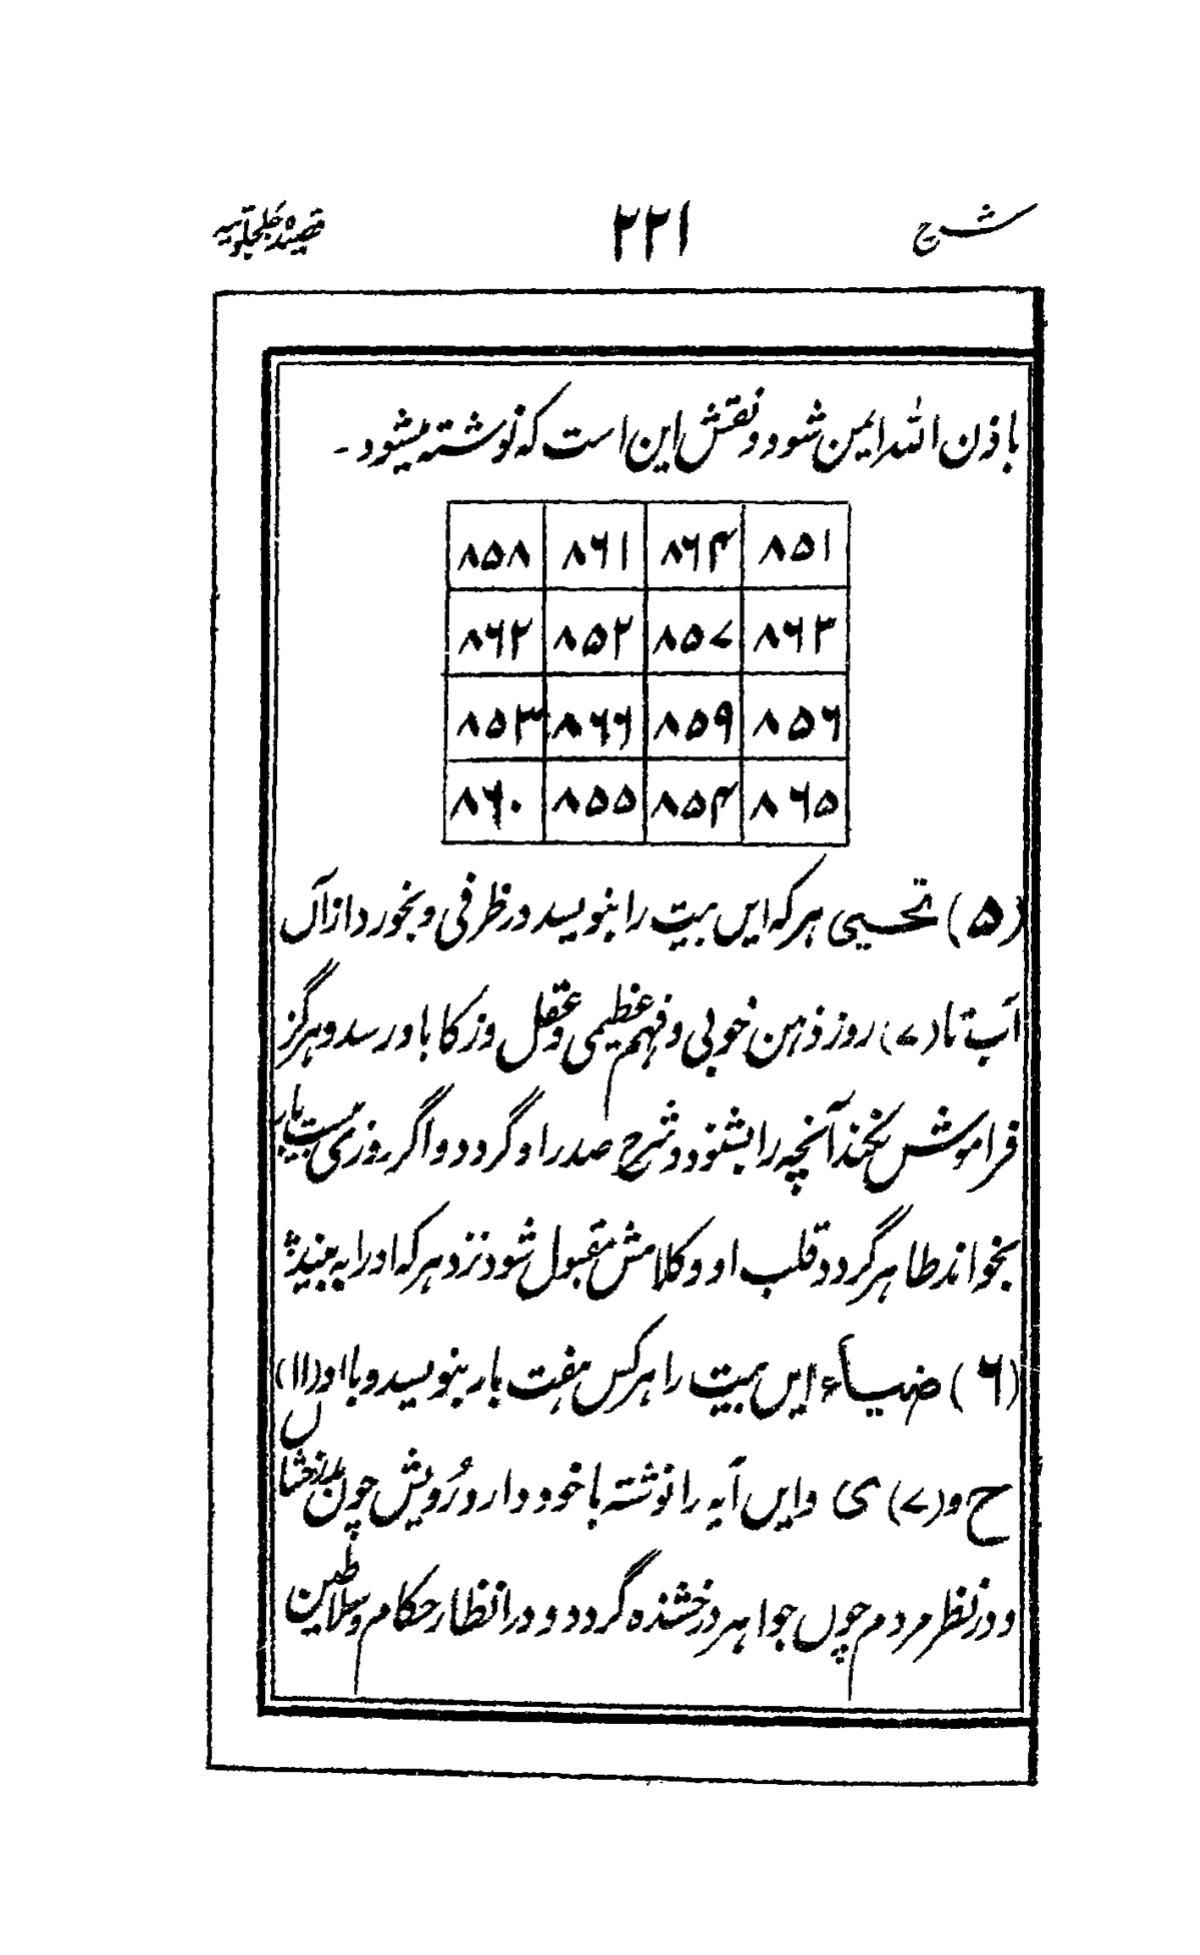 شرح ۲۲۱ قصیده جلجلوتیه
باذن الله ایمن شود و نقش این است که نوشته میشود -
۸۵۱ ۸۶۴ ۸۶۱ ۸۵۸
۸۶۳ ۸۵۷ ۸۵۲ ۸۶۲
۸۵۶ ۸۵۹ ۸۶۶ ۸۵۳
۸۶۵ ۸۵۴ ۸۵۵ ۸۶۰
(۵) تحسیی هر که ایں بیت را بنویسد در ظرفی و بخورد از آں
آب تا (۷) روز ذہن خوبی و فہم عظیمی و عقل و زکا باو رسد و ہرگز
فراموش نکند آنچه را بشنود و شرح صدر او گردد و اگر روزی بیست بار
بخواند طاہر گردد قلب او و کلامش مقبول شود نزد ہر که او را به بیند
(۶) ضیاء ایں بیت را ہر کس ہفت بار بنویسد و با او (۱۱) ل
ح و (۷) ی و ایں آیه را نوشته با خود دارد رُویش چون
و در نظر مردم چوں جواہر درخشنده گردد و در انظار حکام و سلاطین